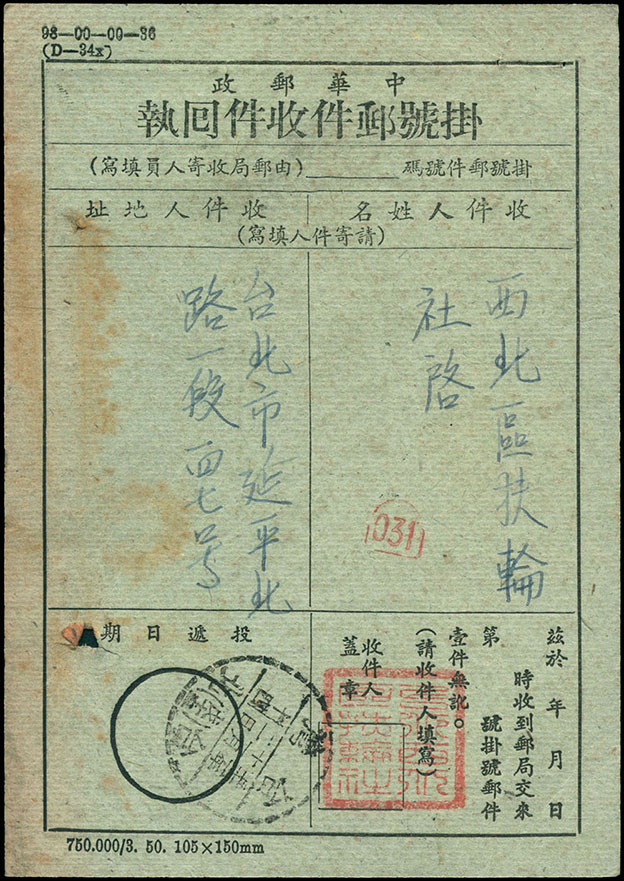 98—00—00—36
(D—34x)
中華郵政
掛號郵件收件回執
掛號郵件號碼______(由郵局收寄人員填寫)
收件人姓名
收件人地址
(請寄件人填寫)
西北區扶輪
社啓
台北市延平北
路一段一四七号
031
茲於 年 月 日
時收到郵局交來
第 號掛號郵件
壹件無訛。
(請收件人填寫)
收件人
蓋章
投遞日期
台
750.000/3. 50. 105×150mm